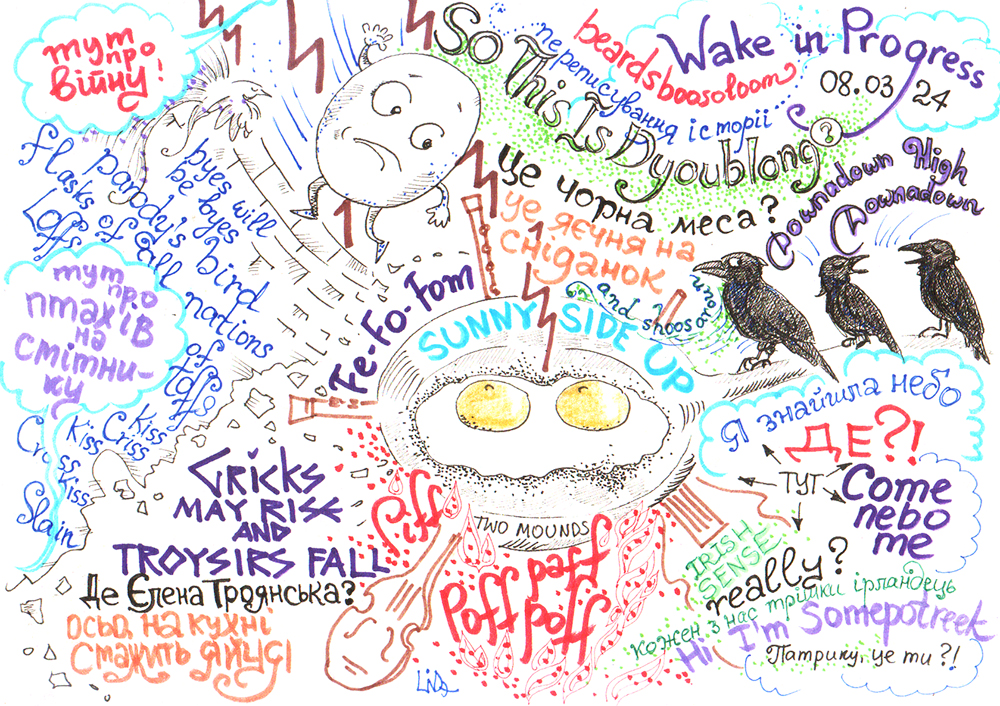 тут
про
війну!
So This Is Dyoublong?
переписування історії
beardsboosoloom
Wake in Progress
08.03 24
Це чорна меса?
це яєчня на
сніданок
Downadown High
Downadown
byes will
be byes
parody's bird
flasks of all nations
Loffs of toffs
тут
про
птахів
на
смітни-
ку
Criss
Kiss
Kiss
Criss
Cross
Kiss
Slain
Fe-Fo-Fom
and shoos aroun
SUNNY SIDE UP
Я знайшла небо
ДЕ?!
ТУТ
Come
nebo
me
Cricks
MAY RISE
AND
TROYSIRS FALL
Де Єлена Троянська?
Осьо, на кухні
Смажить яйці
TWO MOUNDS
Piff
paff
Poff
poff
IRISH
SENSE
really?
кожен з нас трішки ірландець
Hi I'm Somepotreek
Патрику, це ти?!